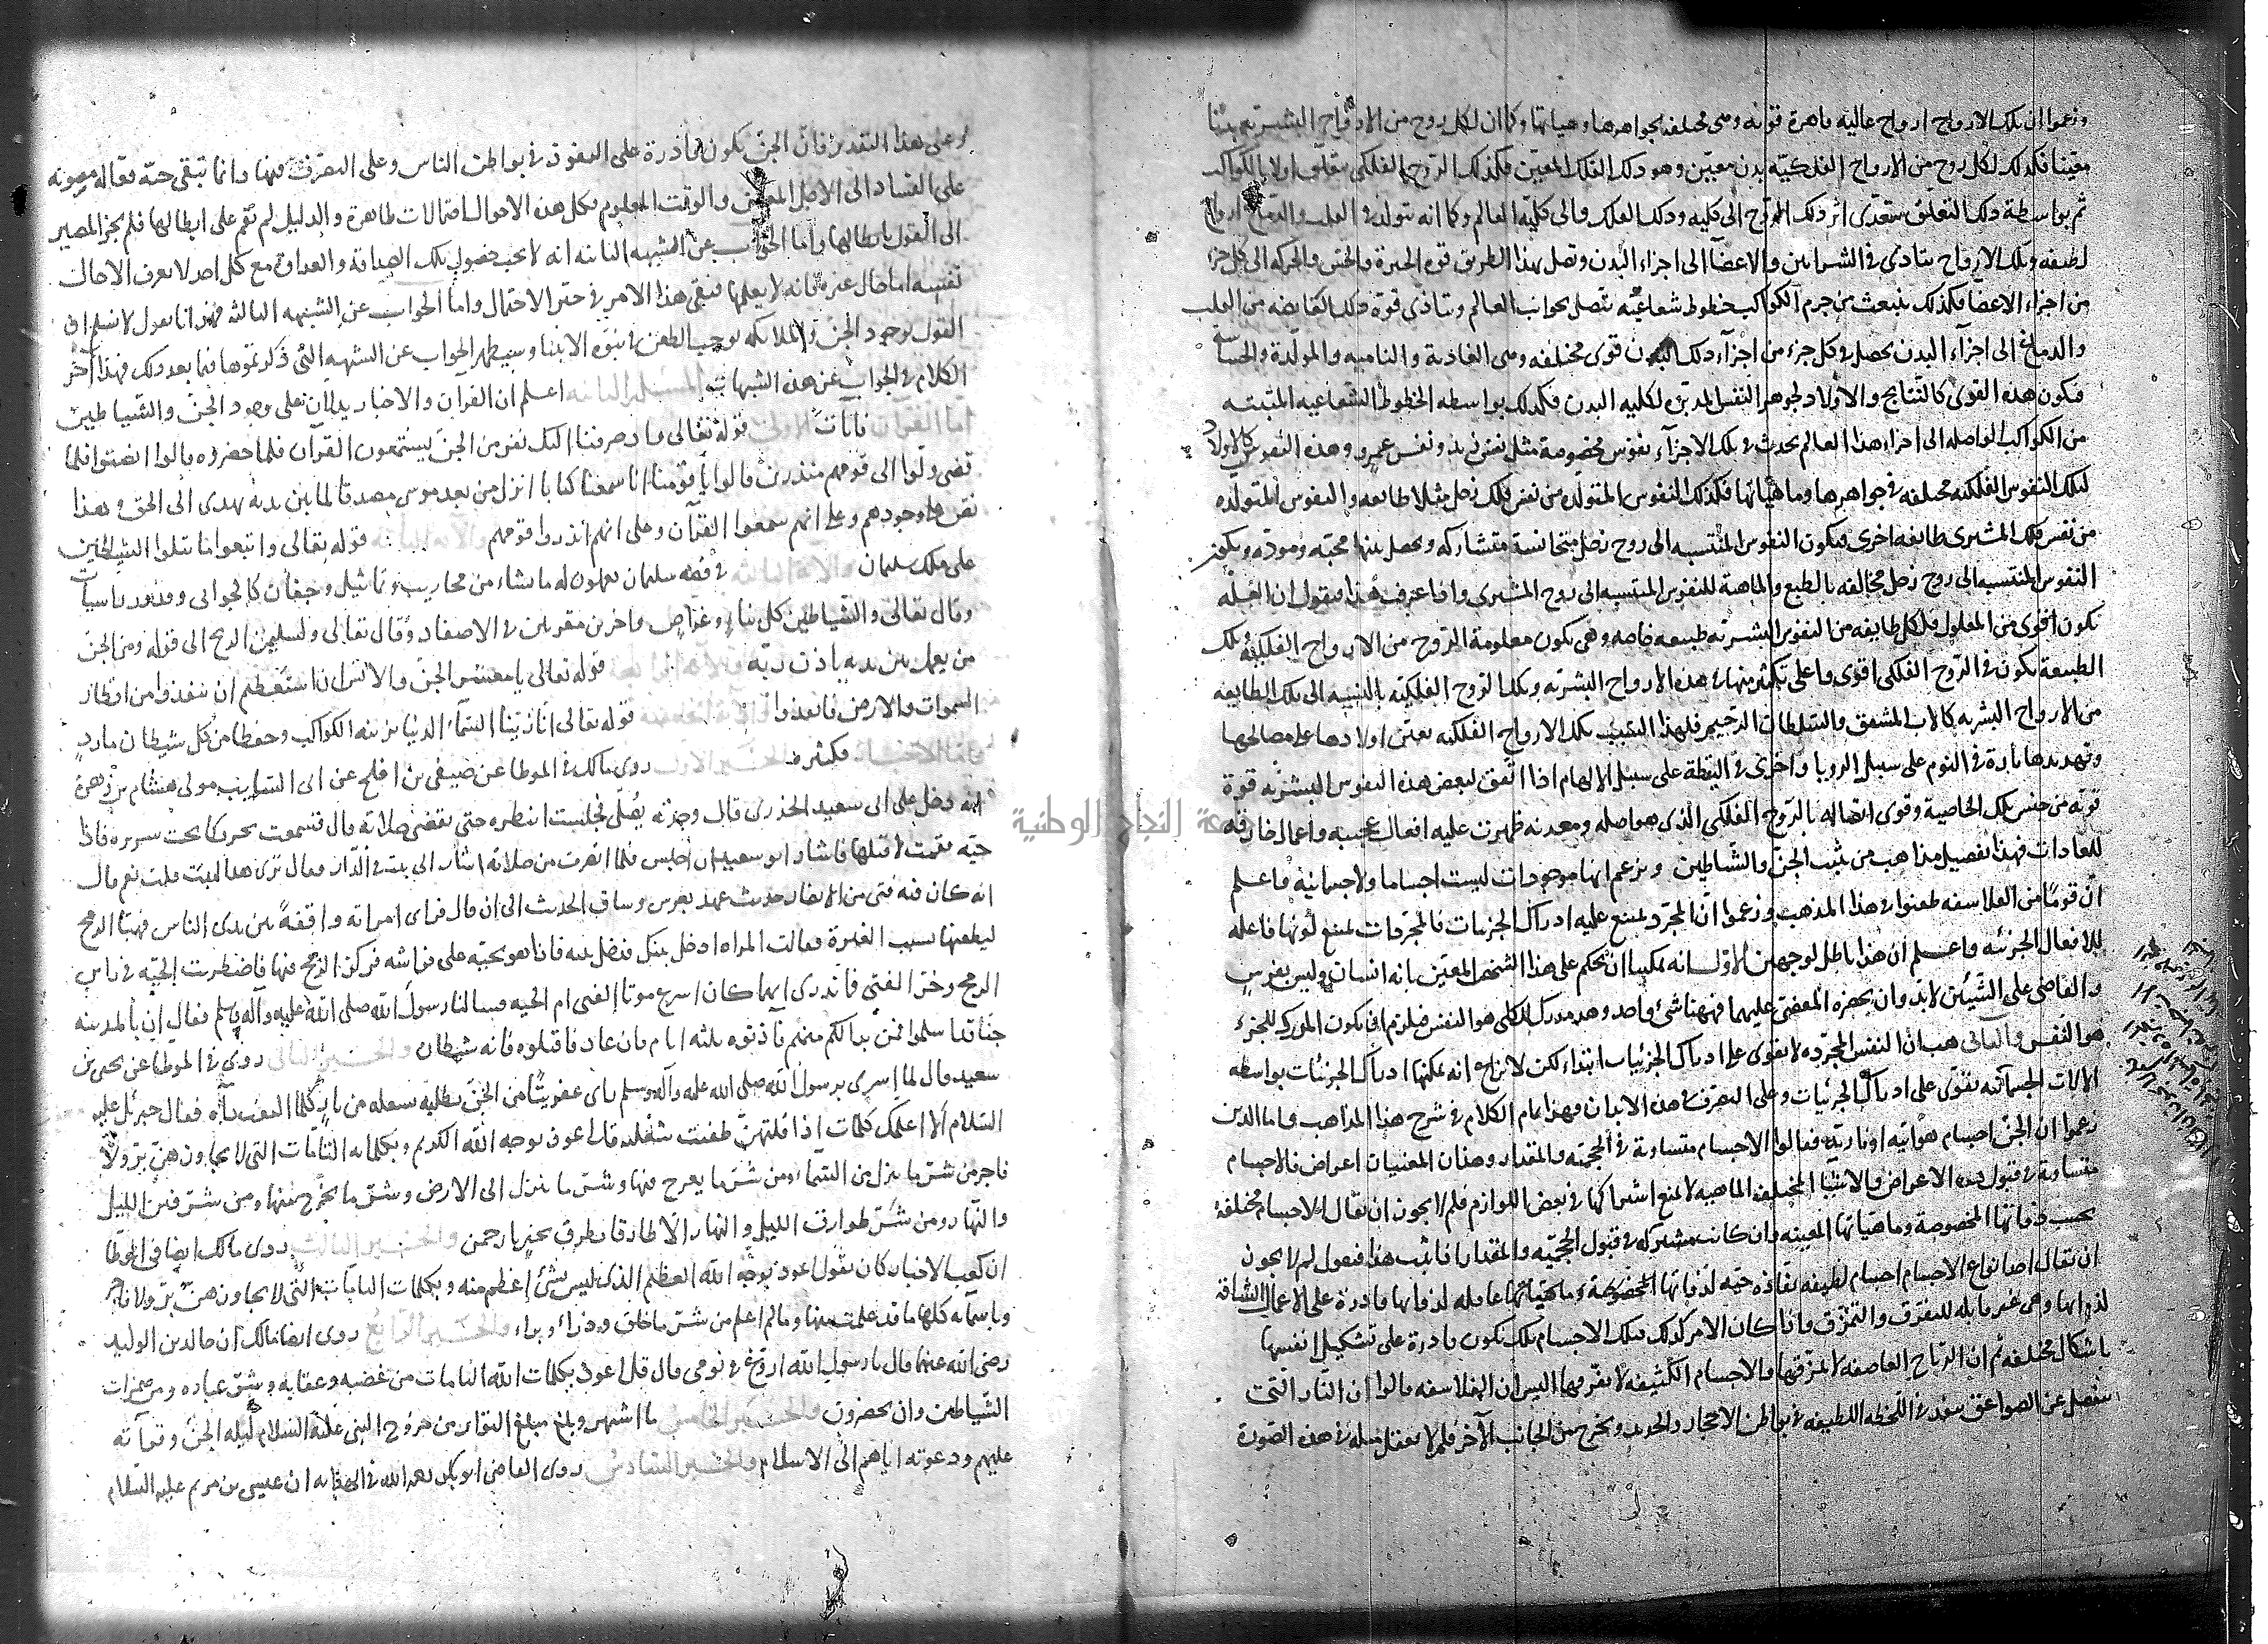 وزعموا ان تلك الارواح ارواح عالية قاهرة قوية وهى مختلفة بجواهرها وهياتها وكما ان لكل روح من الارواح البشرية بدنا
معينا فكذلك لكل روح من الارواح الفلكية بدن معين وهو ذلك الفلك المعين فكذلك الروح الفلكى يتعلق اولا بالكواكب
ثم بواسطة ذلك التعلق يتعدى اثر ذلك الروح الى كلية ذلك الفلك والى كلية العالم وكما انه يتولد فى القلب والدماغ ارواح
لطيفة وتلك الارواح تتادى فى الشرايين والاعضآ الى اجزاء البدن وتصل بهذا الطريق قوة الحيوة والحس والحركة الى كل جزء
من اجزاء الاعضا فكذلك ينبعث من جرم الكواكب خطوط شعاعية تتصل بجوانب العالم وتتادى قوة تلك من القلب
والدماغ الى اجزآء البدن يحصل فى كل جزء من اجزآء ذلك البدن قوى مختلفة وهى الغاذية والنامية والمولدة والحساسة
فتكون هذه القوى كالنتايج والاولاد لجوهر النفس المدبرة لكلية البدن فكذلك بواسطة الخطوط الشعاعية المنبثة
من الكواكب الواصلة الى اجزاء هذا العالم يحدث فى تلك الاجزآء نفوس مخصوصة مثل نفس زيد ونفس عمرو وهذه النفوس كالاولاد
لتلك النفوس الفلكية مختلفة فى جواهرها وماهياتها فكذلك النفوس المتولدة من نفس فلك زحل مثلا طائفة والنفوس المتولدة
من نفس فلك المشترى طايفة اخرى فتكون النفوس المنتسبة الى روح زحل متجانسة متشاركة ويحصل بينها محبة ومودة ويكون
النفوس المنتسبة الى روح زحل مخالفة بالطبع والماهية للنفوس المنتسبة الى روح المشترى واذا عرفت هذا فنقول ان العلة
تكون اقوى من المعلول فلكل طايفة من النفوس البشرية طبيعة خاصة وهى تكون معلومة الروح من الارواح الفلكية تلك
الطبيعة تكون فى الروح الفلكى اقوى واعلى بكثير منها فى هذه الارواح البشرية وتلك الروح الفلكية بالنسبة الى تلك الطايفة
من الارواح البشرية كالاب المشفق والسلطان الرحيم فلهذا السبب تلك الارواح الفلكية تعين اولادها على مصالحها
وتهديها تارة فى النوم على سبيل الرويا واخرى فى اليقظة على سبيل الالهام اذا اتفق لبعض هذه النفوس البشرية قوة
قوية من جنس تلك الخاصية وقوى اتصاله بالروح الفلكى الذى هو اصله ومعدنه ظهرت عليه افعال عجيبة واعمال خارقة
للعادات فهذا تفصيل مذاهب من يثبت الجن والشياطين ويزعم انها موجودات ليست اجساما ولا جسمانية واعلم
ان قوما من الفلاسفة طعنوا فى هذا المذهب وزعموا ان المجرد يمتنع عليه ادراك الجزئيات فالمجردات يمتنع كونها فاعلة
للافعال الجزئية واعلم ان هذا باطل لوجهين الاول انه يمكننا ان نحكم على هذا الشخص المعين بانه انسان وليس بفرس
والقاضى على الشيئين لا بد وان يحضره المقضى عليهما فههنا شئ واحد هو مدرك للكلى هو النفس فيلزم ان يكون المدرك للجزء
هو النفس والثانى هب ان النفس المجردة لا تقوى على ادراك الجزئيات ابتداء لكن لا نزاع انه يمكنها ادراك الجزئيات بواسطة
الالات الجسمانية تقوى على ادراك الجزئيات وعلى التصرف فى هذه الابدان فهذا تمام الكلام فى شرح هذا المذاهب واما الذين
زعموا ان الجن اجسام هوائية او نارية فقالوا الاجسام متساوية فى الحجمية والمقدار وهذان المعنيان اعراض فالاجسام
متساوية فى قبول هذه الاعراض والاشيا المختلفة الماهية لا يمتنع اشتراكها فى بعض اللوازم فلم لا يجوز ان يقال الاجسام مختلفة
بحسب ذواتها المخصوصة وماهياتها المعينة وان كانت مشتركة فى قبول الحجمية والمقدار اذا ثبت هذا فنقول لم لا يجوز
ان يقال احد انواع الاجسام اجسام لطيفة نفاذة حية لذواتها المخصوصة عاقلة لذواتها قادرة على الاعمال الشاقة
لذواتها وهى غير قابلة للتفرق والتمزق واذا كان الامر كذلك فتلك الاجسام تكون قادرة على تشكيل انفسها
باشكال مختلفة ثم ان الرياح العاصفة لا تمزقها والاجسام الكثيفة لا تفرقها اليس ان الفلاسفة قالوا ان النار التى
تنفصل عن الصواعق تنفذ فى اللحظة اللطيفة فى بواطن الاحجار والحديد وتخرج من الجانب الآخر فلم لا يعقل مثله فى هذه الصورة
وعلى هذا التقدير فان الجن تكون قادرة على النفوذ فى بواطن الناس وعلى التصرف فيها وانها تبقى حية فعالة مصونة
على الفساد الى الاجل المعين والوقت المعلوم فكل هذه الاحوال احتمالات ظاهرة والدليل لم يقم على ابطالها فلم يجز المصير
الى القول بابطالها واما الجواب عن الشبهه الثانية انه لا يجب حصول تلك الصداقة والعداوة مع كل احد لا يعرف الا حال
نفسه اما حال غيره فانه لا يعلمها فبقى هذا الامر فى حيز الاحتمال واما الجواب عن الشبهه الثالثة فهو انا نقول لا نسلم ان
القول بوجود الجن والملائكة يوجب الطعن فى نبوة الانبيا وسيظهر الجواب عن الشبهه التى ذكرتموها فيما بعد ذلك فهذا آخر
الكلام فى الجواب عن هذه الشبهات المسئلة الثانية اعلم ان القرآن والاخبار يدلان على وجود الجن والشياطين
اما القرآن فآيات الاولى قوله تعالى واذ صرفنا اليك نفرا من الجن يستمعون القرآن فلما حضروه قالوا انصتوا فلما
قضى ولوا الى قومهم منذرين قالوا يا قومنا انا سمعنا كتابا انزل من بعد موسى مصدقا لما بين يديه يهدى الى الحق وهذا
نص على وجودهم وعلى انهم سمعوا القرآن وعلى انهم انذروا قومهم والآية الثانية قوله تعالى واتبعوا ما تتلوا الشياطين
على ملك سليمان والآية الثالثة فى قصة سليمان يعملون له ما يشاء من محاريب وتماثيل وجفان كالجوابى وقدور راسيات
وقال تعالى والشياطين كل بناء وغواص واخرين مقرنين فى الاصفاد وقال تعالى ولسليمن الريح الى قوله ومن الجن
من يعمل بين يديه باذن ربه والآية الرابعة قوله تعالى يا معشر الجن والانس ان استطعتم ان تنفذوا من اقطار
السموات والارض فانفذوا والآية الخامسة قوله تعالى انا زينا السمآء الدنيا بزينة الكواكب وحفظا من كل شيطان مارد
واما الاخبار فكثيرة الخبر الاول روى مالك فى الموطا عن صيفى بن افلح عن ابى السايب مولى هشام بن زهرة
انه دخل على ابى سعيد الخدرى قال وجدته يصلى فجلست انتظره حتى يقضى صلاته قال فسمعت تحريكا تحت سريره فاذا
حية فقمت لاقتلها فاشار ابو سعيد ان اجلس فلما انصرف من صلاته اشار الى بيت فى الدار وقال ترى هذا البيت قلت نعم قال
انه كان فيه فتى من الانصار حديث عهد بعرس وساق الحديث الى ان قال فراى امراته واقفة بين يدى الناس فهيا الرمح
ليطعنها بسبب الغيرة فقالت المراه ادخل بيتك فدخل بيته فاذا هو بحية على فراشه فركز الرمح فيها فاضطربت الحية فى راس
الرمح وخر الفتى فما ندرى ايهما كان اسرع موتا الفتى ام الحيه فسالنا رسول الله صلى الله عليه وآله وسلم فقال ان بالمدينه
جنا قد اسلموا فمن بدا لكم منهم فآذنوه ثلثة ايام فان عاد فاقتلوه فانه شيطان والخبر الثانى روى فى الموطا عن يحيى بن
سعيد قال لما اسرى برسول الله صلى الله عليه وآله وسلم راى عفريتا من الجن يطلبه بشعلة من نار كلما التفت رآه فقال جبرئل عليه
السلام الا اعلمك كلمات اذا قلتهن طفئت شعلته قال اعوذ بوجه الله الكريم وبكلماته التامات التى لا يجاوزهن بر ولا
فاجر من شر ما ينزل من السمآء ومن شر ما يعرج فيها وشر ما ينزل الى الارض وشر ما يخرج منها ومن شر فتن الليل
والنهار ومن شر طوارق الليل والنهار الا طارقا يطرق بخير يا رحمن والخبر الثالث روى مالك ايضا فى الموطا
ان كعب الاخبار كان يقول اعوذ بوجه الله العظيم الذى ليس شئ اعظم منه وبكلمات التامات التى لا يجاوزهن بر ولا فاجر
وباسمائه كلها ما قد علمت منها وما لم اعلم من شر ما خلق وذرأ وبرا والخبر الرابع روى ايضا مالك ان خالد بن الوليد
رضى الله عنه قال يا رسول الله اروع فى نومى قال قل اعوذ بكلمات الله التامات من غضبه وعقابه وشر عباده ومن همزات
الشياطين وان يحضرون والخبر الخامس ما اشتهر وبلغ مبلغ التواتر من خروج النبى عليه السلام ليلة الجن وقرآته
عليهم ودعوته اياهم الى الاسلام والخبر السادس روى القاضى ابو بكر رحمه الله فى الهداية ان عيسى بن مريم عليه السلام
جامعة النجاح الوطنية